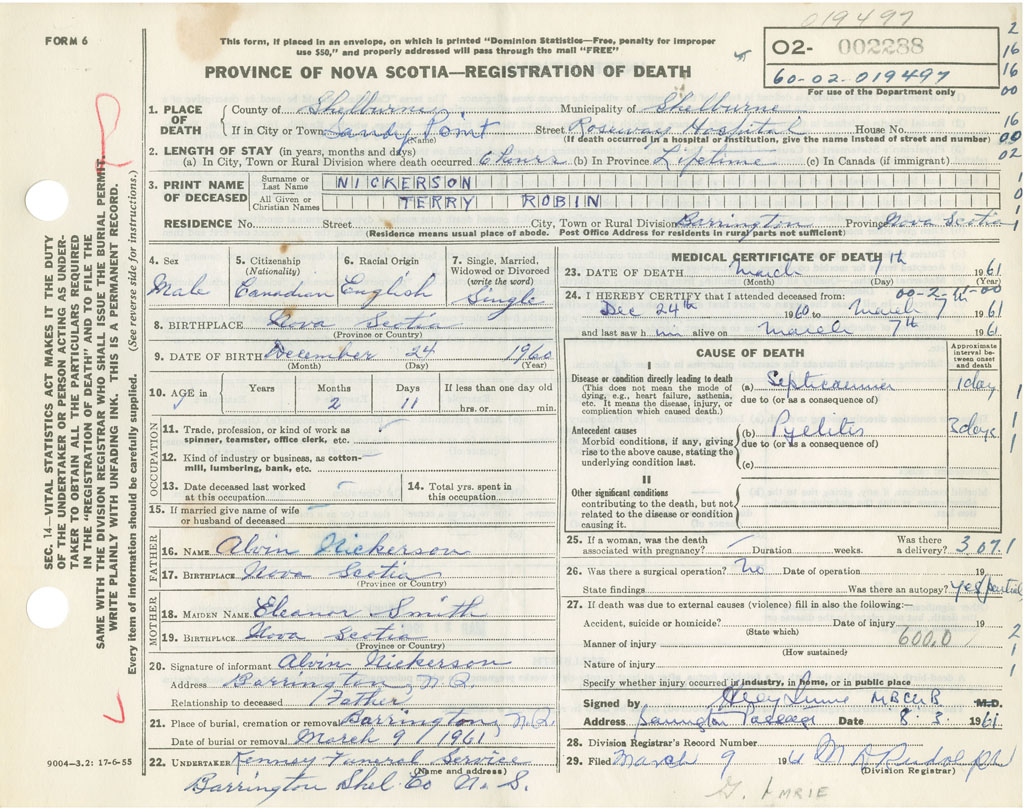 019497
FORM 6
This form, if placed in an envelope, on which is printed "Dominion Statistics—Free, penalty for improper
use $50," and properly addressed will pass through the mail "FREE"
O2- 002288
60-02-019497
For use of the Department only
PROVINCE OF NOVA SCOTIA—REGISTRATION OF DEATH
1. PLACE OF DEATH
County of Shelburne Municipality of Shelburne
If in City or Town Sandy Point Street Roseway Hospital House No.
(Name) (If death occurred in a hospital or institution, give the name instead of street and number)
2. LENGTH OF STAY (in years, months and days)
(a) In City, Town or Rural Division where death occurred 6 hours (b) In Province Lifetime (c) In Canada (if immigrant)
3. PRINT NAME OF DECEASED
Surname or Last Name NICKERSON
All Given or Christian Names TERRY ROBIN
RESIDENCE No. Street City, Town or Rural Division Barrington Province Nova Scotia
(Residence means usual place of abode. Post Office Address for residents in rural parts not sufficient)
4. Sex Male
5. Citizenship (Nationality) Canadian
6. Racial Origin English
7. Single, Married, Widowed or Divorced (write the word) Single
8. BIRTHPLACE Nova Scotia
(Province or Country)
9. DATE OF BIRTH December 24 1960
(Month) (Day) (Year)
10. AGE in Years Months 2 Days 11 If less than one day old hrs. or min.
OCCUPATION
11. Trade, profession, or kind of work as spinner, teamster, office clerk, etc.
12. Kind of industry or business, as cotton-mill, lumbering, bank, etc.
13. Date deceased last worked at this occupation
14. Total yrs. spent in this occupation
15. If married give name of wife or husband of deceased
FATHER
16. NAME Alvin Nickerson
17. BIRTHPLACE Nova Scotia
(Province or Country)
MOTHER
18. MAIDEN NAME Eleanor Smith
19. BIRTHPLACE Nova Scotia
(Province or Country)
20. Signature of informant Alvin Nickerson
Address Barrington, N.S.
Relationship to deceased Father
21. Place of burial, cremation or removal Barrington, N.S.
Date of burial or removal March 9 / 1961
22. UNDERTAKER Kenney Funeral Service
(Name and address)
Barrington Shel. Co N. S.
MEDICAL CERTIFICATE OF DEATH
23. DATE OF DEATH March 7th 1961
(Month) (Day) (Year)
24. I HEREBY CERTIFY that I attended deceased from:
Dec 24th 1960 to March 7th 1961
and last saw him alive on March 7th 1961
CAUSE OF DEATH
Approximate interval between onset and death
I
Disease or condition directly leading to death
(This does not mean the mode of dying, e.g., heart failure, asthenia, etc. It means the disease, injury, or complication which caused death.)
(a) Septicaemia 1 day
due to (or as a consequence of)
Antecedent causes
Morbid conditions, if any, giving rise to the above cause, stating the underlying condition last.
(b) Pyelitis 3 days
due to (or as a consequence of)
(c)
II
Other significant conditions contributing to the death, but not related to the disease or condition causing it.
25. If a woman, was the death associated with pregnancy? Duration weeks. Was there a delivery? 3.07.1
26. Was there a surgical operation? No Date of operation 19
State findings Was there an autopsy? Yes partial
27. If death was due to external causes (violence) fill in also the following:—
Accident, suicide or homicide? Date of injury 19
(State which)
Manner of injury 600.0
(How sustained)
Nature of injury
Specify whether injury occurred in industry, in home, or in public place
Signed by M.B.Ch.B. M.D.
Address Barrington Passage Date 8. 3 1961
28. Division Registrar's Record Number
29. Filed March 9 1961
(Division Registrar)
SEC. 14—VITAL STATISTICS ACT MAKES IT THE DUTY
OF THE UNDERTAKER OR PERSON ACTING AS UNDER-
TAKER TO OBTAIN ALL THE PARTICULARS REQUIRED
IN THE "REGISTRATION OF DEATH" AND TO FILE THE
SAME WITH THE DIVISION REGISTRAR WHO SHALL ISSUE THE BURIAL PERMIT.
WRITE PLAINLY WITH UNFADING INK. THIS IS A PERMANENT RECORD.
Every item of information should be carefully supplied. (See reverse side for instructions.)
9004—3.2: 17-6-55